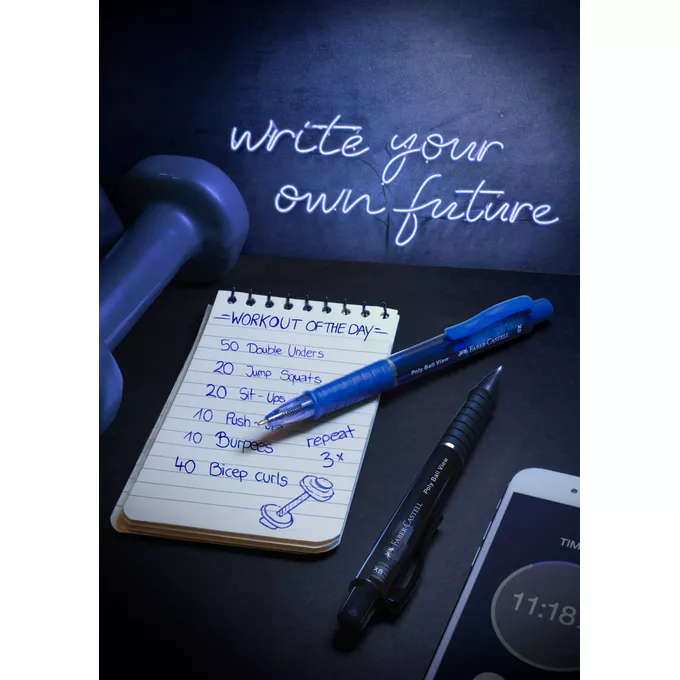 write your
own future
=WORKOUT OF THE DAY=
50 Double Unders
20 Jump Squats
20 Sit-Ups
10 Push-Ups
10 Burpees
repeat
3x
40 Bicep curls
Poly Ball View
FABER CASTELL
XB
Poly Ball View
FABER CASTELL
XB
TIM
11:18